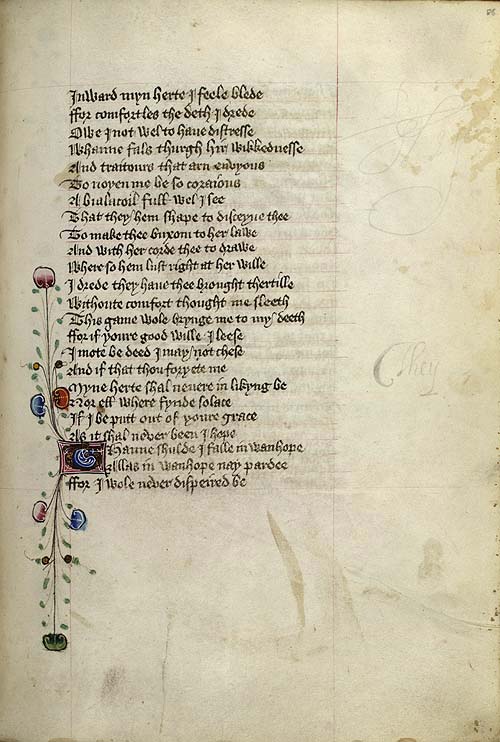 Inward myn herte I feele blede
ffor comfortles the deth I drede
Owe I not wel to haue distresse
Whanne fals thurgh hir wikkednesse
And traitours that arn envyous
To noyen me be so coraious
A bialacoil full wel I see
That they hem shape to disceyue thee
To make thee buxom to her lawe
And with her corde thee to drawe
Where so hem lust right at her wille
I drede they haue thee brought thertille
Withoute comfort thought me sleeth
This game wole brynge me to my deeth
ffor if youre good wille I leese
I mote be deed I may not chese
And if that thou foryete me
Myne herte shal neuere in likyng be
Nor elles where fynde solace
If I be putt out of youre grace
As it shal never been I hope
Thanne shulde I falle in wanhope
Allas in wanhope nay pardee
ffor I wole never dispeired be
They